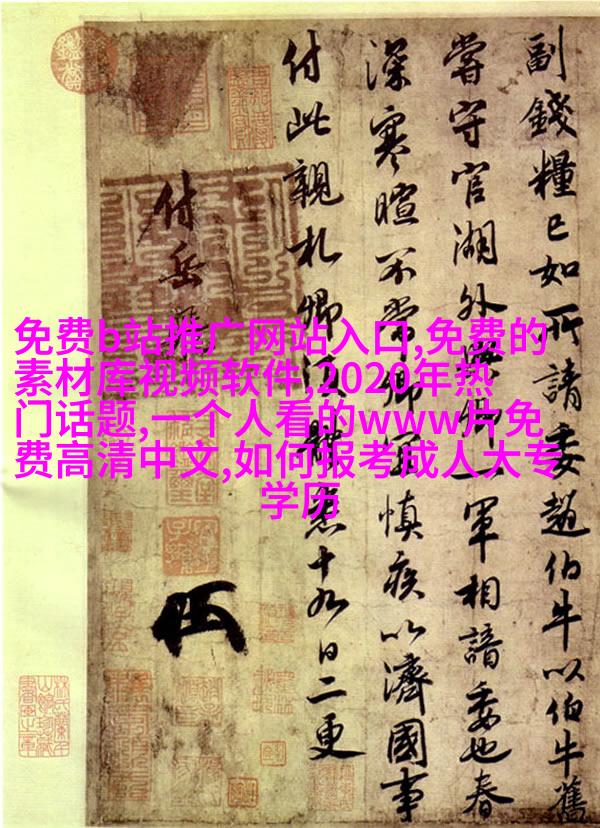 免费b站推广网站入口,免费的
素材库视频软件,2020年热
门话题,一个人看的www片免
费高清中文,如何报考成人大专
学历
副錢糧已如所請委趙伯牛以伯牛舊
嘗守官湖外與卿一軍相諳委也春
深寒暄不常卿宜慎疾以濟國事
付此親札卿須體悉十九日二更
付岳飛